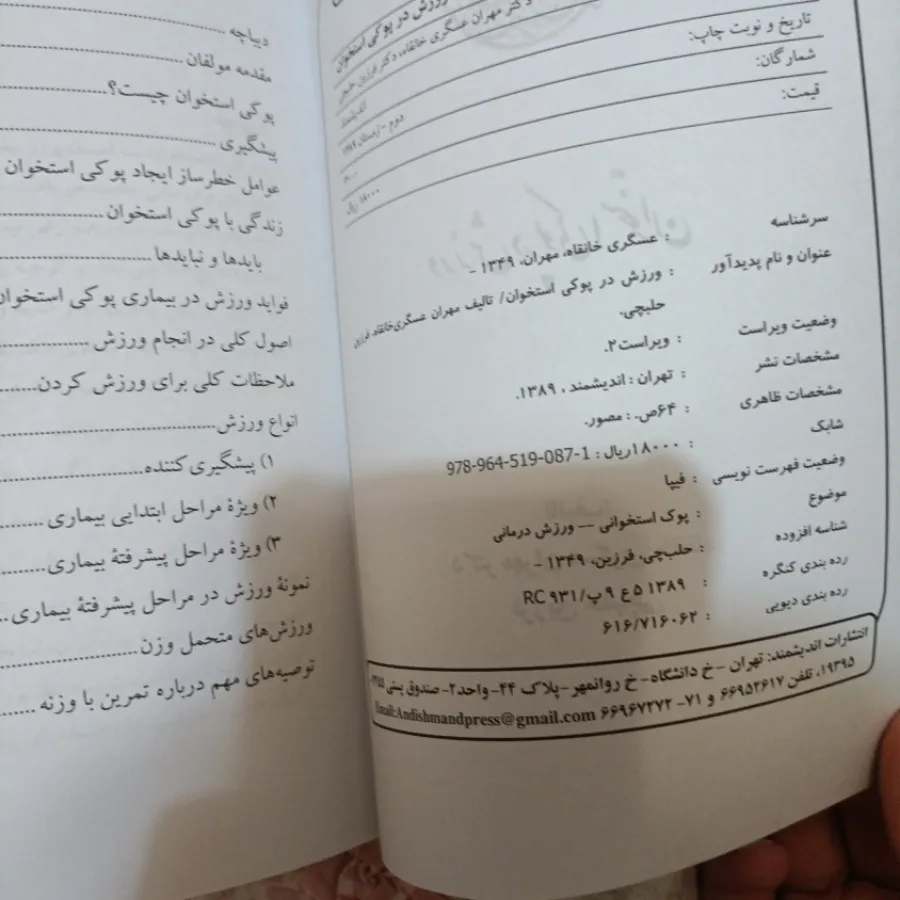 ورزش در پوکی استخوان
دکتر مهران عسگری خانقاه، دکتر فرزین حلبچی
اندیشمند
تاریخ و نوبت چاپ: دوم - زمستان ۱۳۸۹
شمارگان:
قیمت: ۱۸۰۰۰ ریال
سرشناسه : عسگری خانقاه، مهران، ۱۳۴۹ -
عنوان و نام پدیدآور : ورزش در پوکی استخوان/ تالیف مهران عسگری‌خانقاه، فرزین
حلبچی.
وضعیت ویراست : ویراست۲.
مشخصات نشر : تهران : اندیشمند ، ۱۳۸۹.
مشخصات ظاهری : ۶۴ص. : مصور.
شابک : ۱۸۰۰۰ریال : 978-964-519-087-1
وضعیت فهرست نویسی : فیپا
موضوع : پوک استخوانی –– ورزش درمانی
شناسه افزوده : حلب‌چی، فرزین، ۱۳۴۹ -
رده بندی کنگره : ۱۳۸۹ ۵ع ۹پ/RC ۹۳۱
رده بندی دیویی : ۶۱۶/۷۱۶۰۶۲
انتشارات اندیشمند: تهران –خ دانشگاه– خ روانمهر–پلاک ۴۴– واحد۲– صندوق پستی
۱۹۳۹۵، تلفن ۶۶۹۵۲۶۱۷ و ۷۱– ۶۶۹۶۷۲۷۲ Email:Andishmandpress@gmail.com
دیباچه ..............................
مقدمه مولفان ..............................
پوکی استخوان چیست؟ ..............................
پیشگیری ..............................
عوامل خطرساز ایجاد پوکی استخوان
زندگی با پوکی استخوان ....................
بایدها و نبایدها ..............................
فواید ورزش در بیماری پوکی استخوان
اصول کلی در انجام ورزش ..................
ملاحظات کلی برای ورزش کردن.......
انواع ورزش..............................
۱) پیشگیری‌کننده ..............................
۲) ویژۀ مراحل ابتدایی بیماری ........
۳) ویژۀ مراحل پیشرفتۀ بیماری.........
نمونۀ ورزش در مراحل پیشرفتۀ بیماری..
ورزش‌های متحمل وزن ....................
توصیه‌های مهم درباره تمرین با وزنه .......